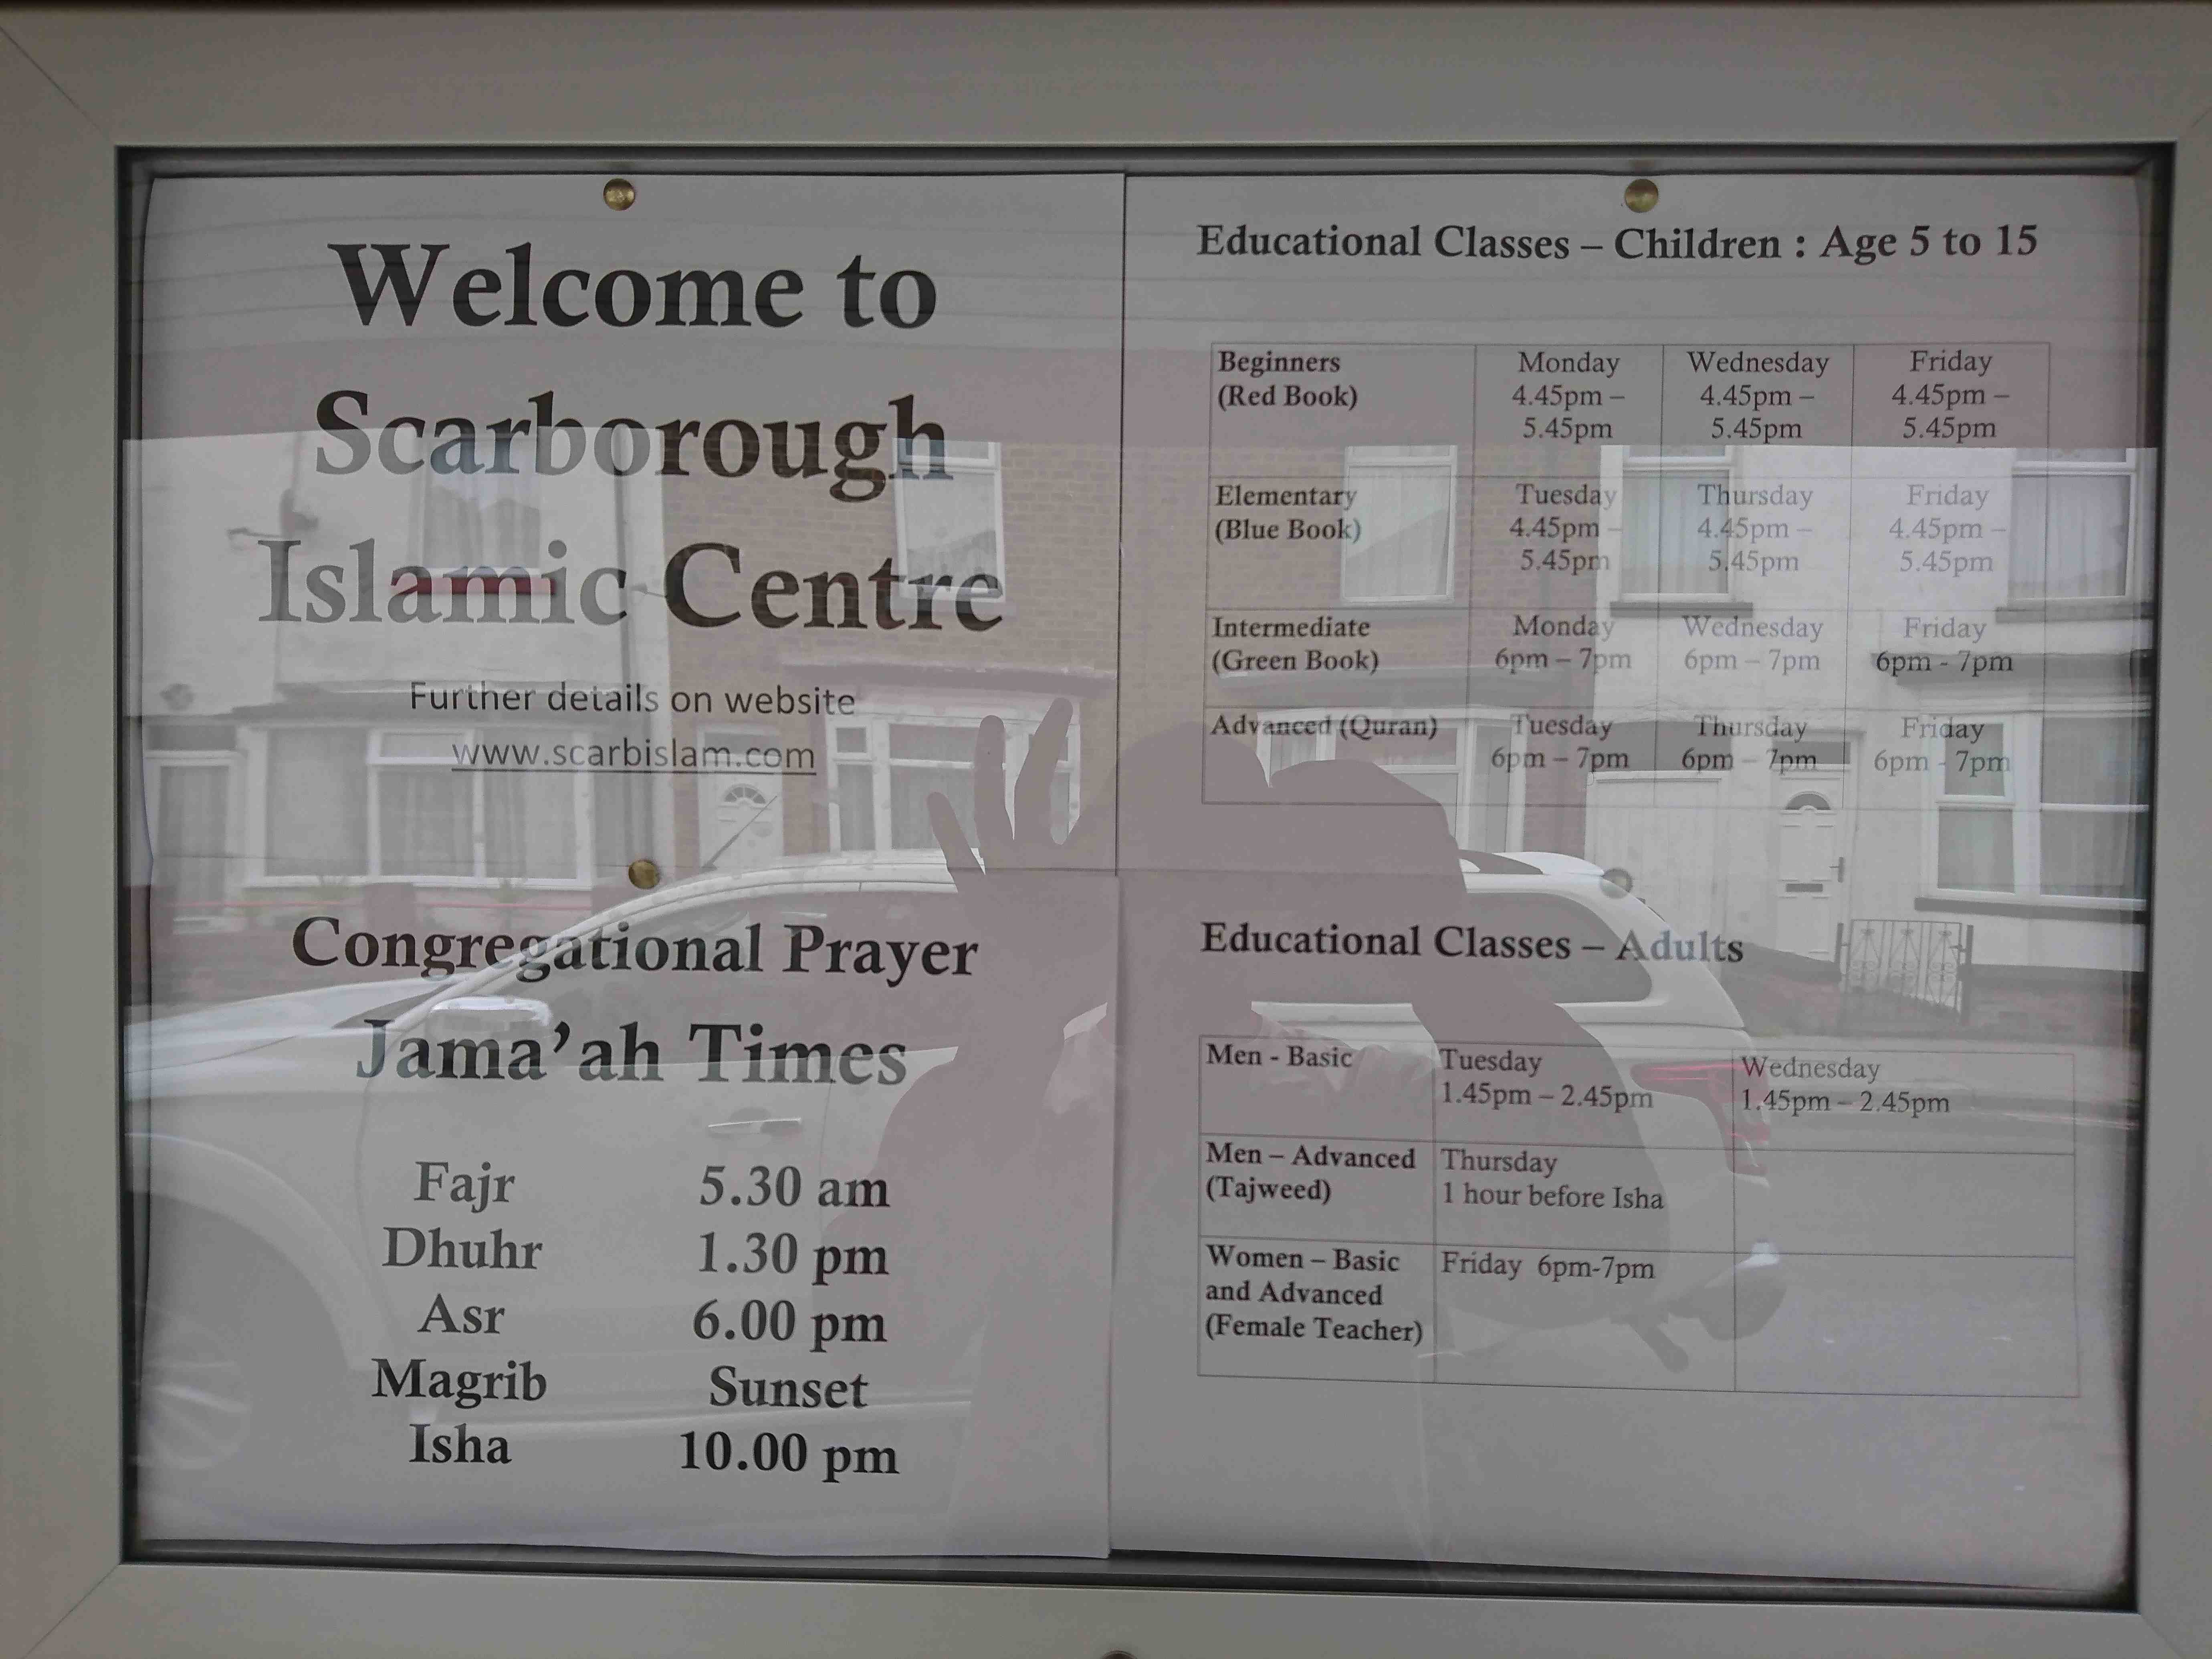 Welcome to
Scarborough
Islamic Centre
Further details on website
www.scarbislam.com
Congregational Prayer
Jama’ah Times
Fajr 5.30 am
Dhuhr 1.30 pm
Asr 6.00 pm
Magrib Sunset
Isha 10.00 pm
Educational Classes – Children : Age 5 to 15
Beginners Monday Wednesday Friday
(Red Book) 4.45pm – 4.45pm – 4.45pm –
5.45pm 5.45pm 5.45pm
Elementary Tuesday Thursday Friday
(Blue Book) 4.45pm – 4.45pm – 4.45pm –
5.45pm 5.45pm 5.45pm
Intermediate Monday Wednesday Friday
(Green Book) 6pm – 7pm 6pm – 7pm 6pm - 7pm
Advanced (Quran) Tuesday Thursday Friday
6pm – 7pm 6pm – 7pm 6pm - 7pm
Educational Classes – Adults
Men - Basic Tuesday Wednesday
1.45pm – 2.45pm 1.45pm – 2.45pm
Men – Advanced Thursday
(Tajweed) 1 hour before Isha
Women – Basic Friday 6pm-7pm
and Advanced
(Female Teacher)